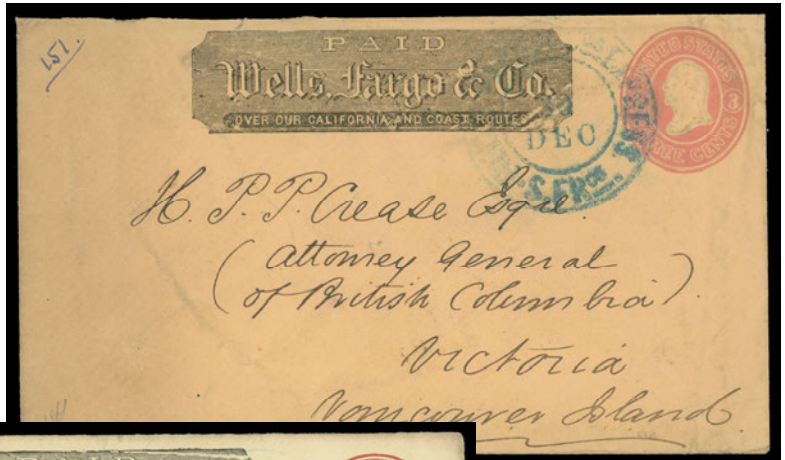 151
PAID
Wells, Fargo & Co.
OVER OUR CALIFORNIA AND COAST ROUTES
UNITED STATES
3
THREE CENTS
DEC
S. FRco.
H. P. P. Crease Esqre
(Attorney General
of British Columbia)
Victoria
Vancouver Island
PAID